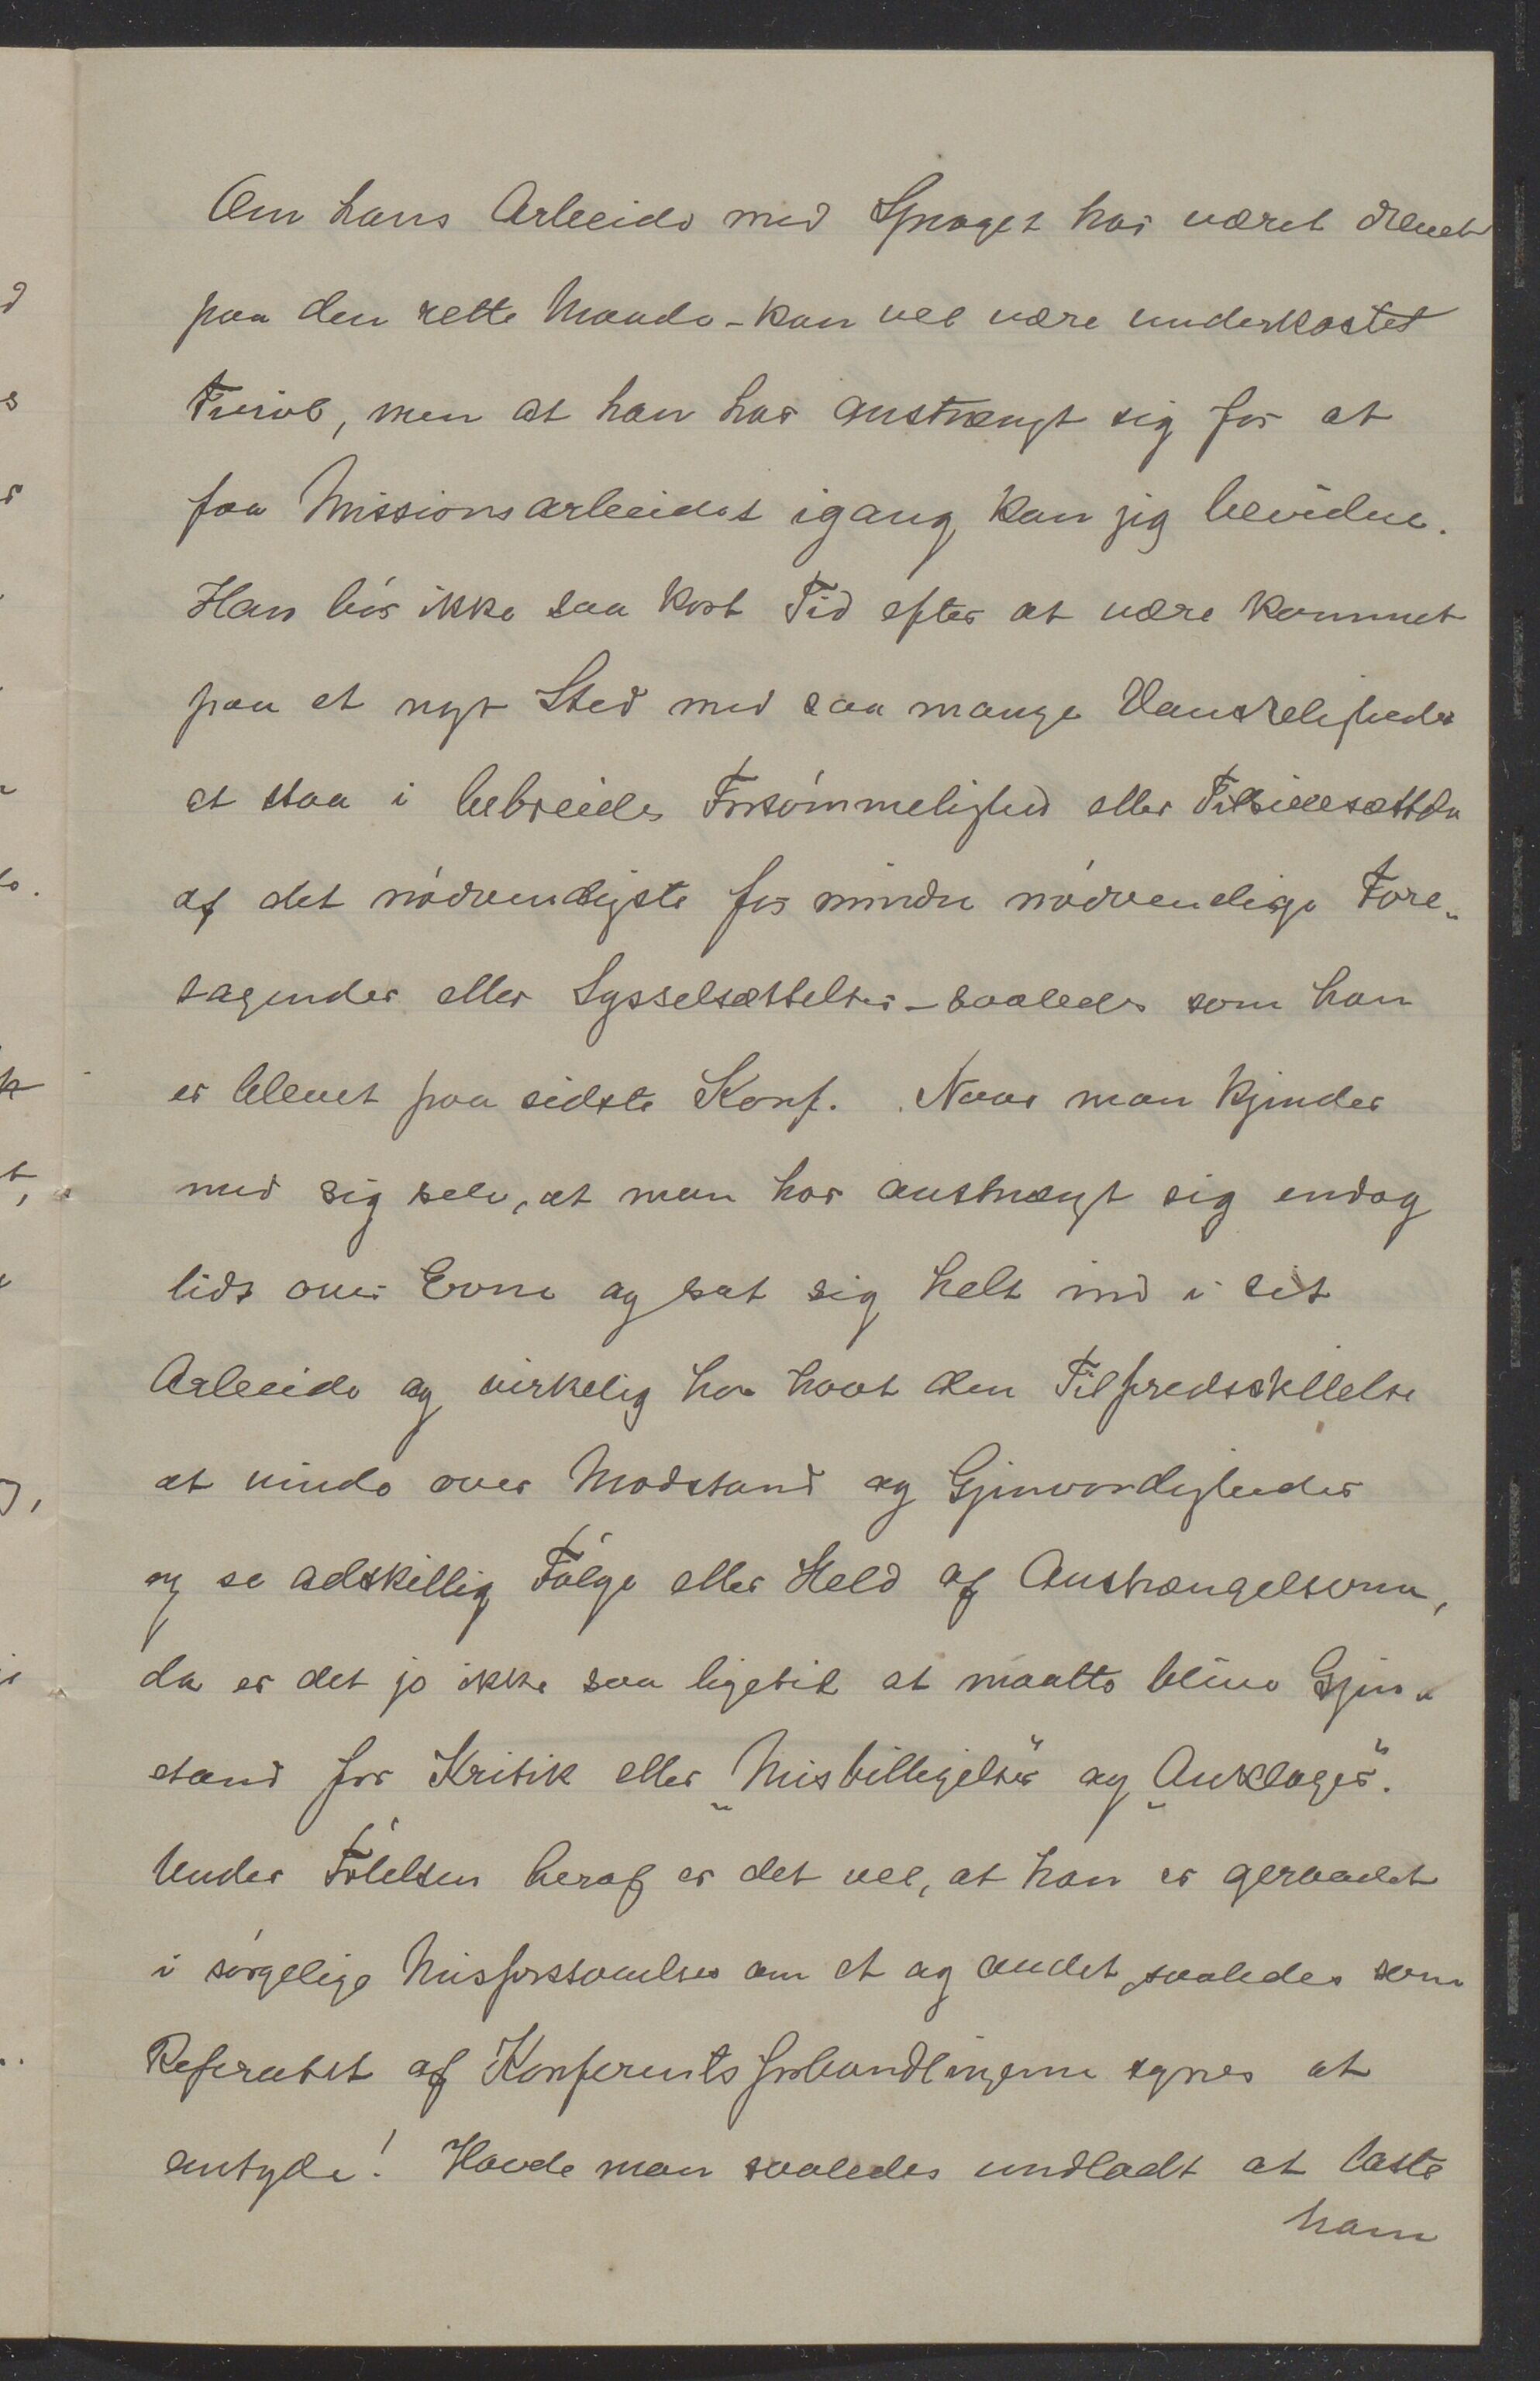 Om hans Arbeide med Sproget har været drevet
paa den rette Maade - kan vel være underkastet
Tvivl, men at han har anstrængt sig for at
faa Missionsarbeidet igang kan jig bevidne.
Han bör ikke saa kort Tid efter at være kommet
paa et nyt Sted med saa mange Vanskeligheder
at staa i bebreides Forsömmelighed eller Tilsidesættelse
af det nödvendigste for mindre nödvendige Fore„
tagender eller Sysselsættelser - saaledes som han
er blevet paa sidste Konf. Naar man kjender
med sig selv, at man har anstrængt sig endog
lidt over Evne og sat sig helt ind i sit
Arbeide og virkelig har havt den Tilfredsstillelse
at vinde over Modstand og Gjenvordigheder
og se adskillig Fölge eller Held af Anstrængelserne,
da er det jo ikke saa ligetil at maatte blive Gjen„
stand for Kritik eller „Misbilligelser" og „Anklager".
Under Fölelsen heraf er det vel, at han er geraadet
i sörgelige Misforstaaelser om et og andet, saaledes som
Referatet af Konferents forhandlingerne synes at
antyde! Havde man saaledes undladt at laste
ham